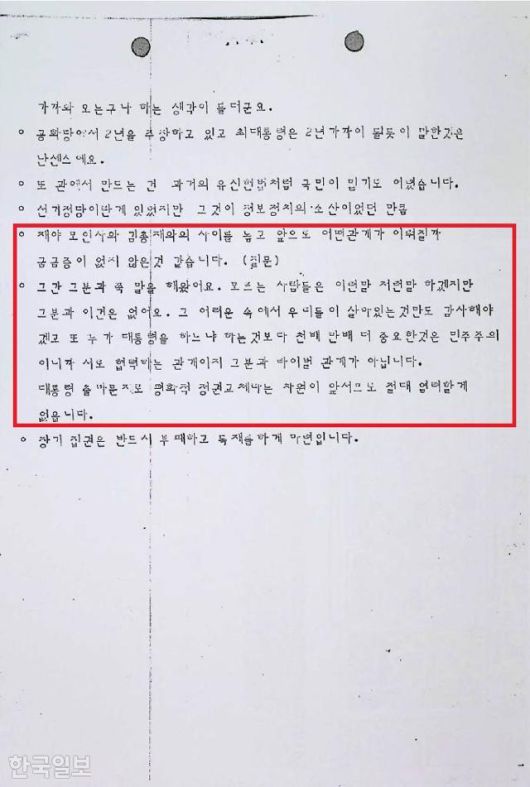 가까와 오는구나 하는 생각이 들더군요.
○ 공화당에서 2년을 주장하고 있고 최대통령은 2년가까이 될듯이 말한것은
난센스에요.
○ 또 관에서 만드는 건 과거의 유신헌법처럼 국민이 믿기도 어렵습니다.
○ 선거정당이란게 있었지만 그것이 정보정치의 소산이었던 만큼
○ 재야 모인사와 김총재와의 사이를 놓고 앞으로 어떤관계가 이뤄질까
궁금증이 없지 않은것 같습니다. (질문)
○ 그간 그분과 쭉 말을 해왔어요. 모르는 사람들은 이런말 저런말 하겠지만
그분과 이견은 없어요. 그 어려운 속에서 우리들이 살아있는것만도 감사해야
겠고 또 누가 대통령을 하느냐 하는것보다 천배 만배 더 중요한것은 민주주의
이니까 서로 협력하는 관계이지 그분과 라이벌 관계가 아닙니다.
대통령 출마문제로 평화적 정권교체라는 차원이 앞서므로 절대 염려할게
없읍니다.
○ 장기 집권은 반드시 부패하고 독재를하게 마련입니다.
한국일보